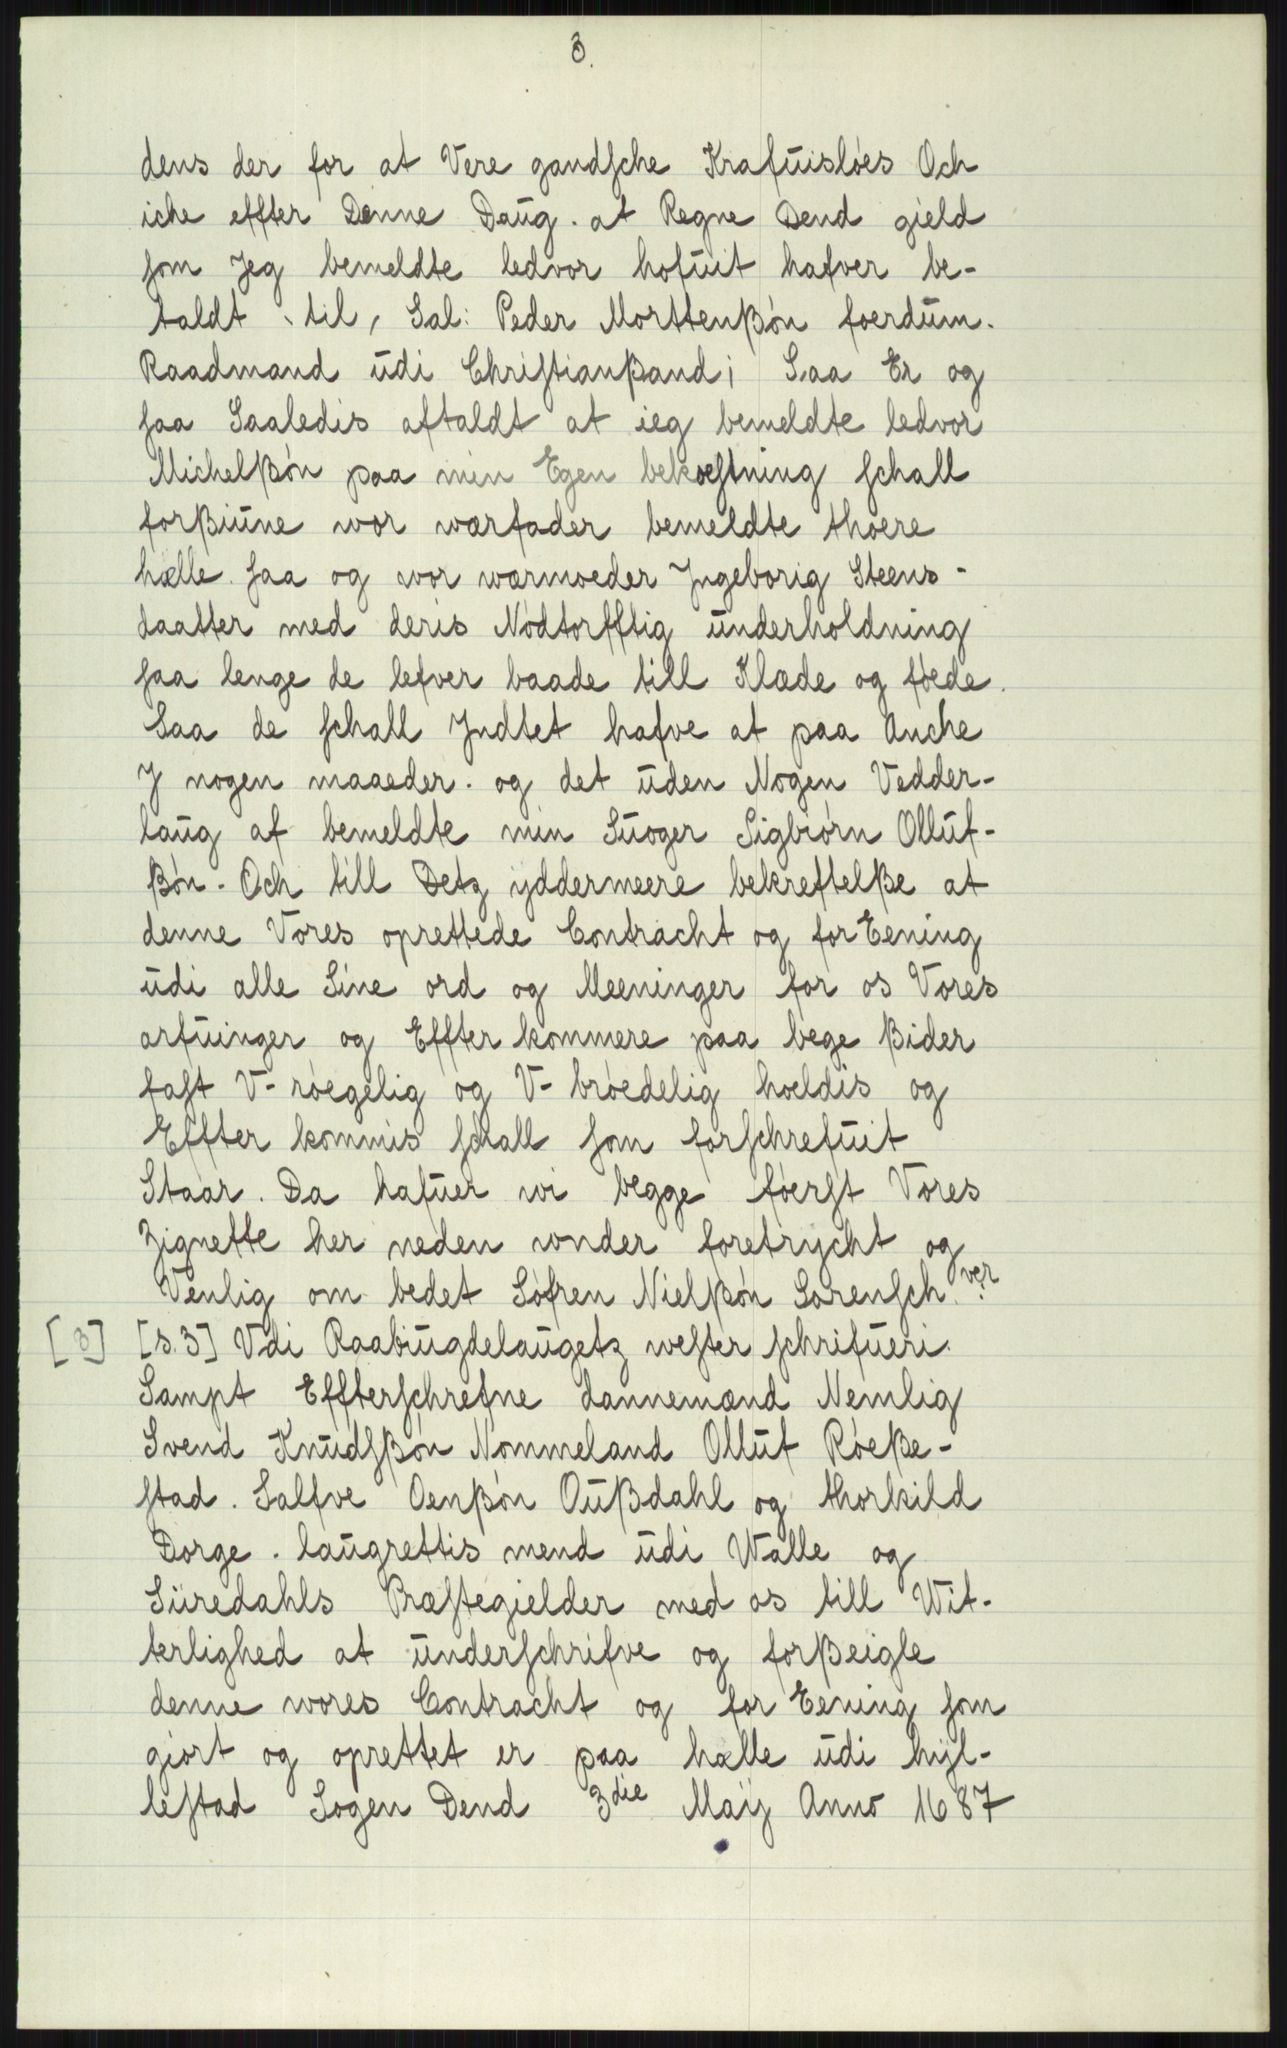 3.
dens der for at Vere gandsche Krafuisløes Och
iche effter Denne Daug. at Regne Dend gield
som Jeg bemeldte ledvor hofuit hafver be-
taldt til, Sal: Peder Morttenßøn foerdum.
Raadmand udi Christianßand; Saa Er og
saa Saaledis aftaldt at ieg bemeldte ledvor
Michelßøn paa min Egen bekoestning schall
forßiune wor wærfader bemeldte thoere
hælle saa og wor wærmoeder Jngeborig Steens-
daatter med deris Nødtorfftig underholdning
saa lenge de lefver baade till Klæde og føede.
Saa de schall Jndtet hafve at paa Anche
J nogen maaeder. og det uden Nogen Vedder-
laug af bemeldte min Suoger Sigbiørn Olluf-
ßøn. Och till Detz yddermeere bekreftelße at
denne Vores oprettede Contracht og for Eening
udi alle Sine ord og Meeninger for os Vores
arfuinger og Effter kommere paa bege ßider
fast V-røegelig og V-brøedelig hoeldis og
Effter kommis schall som forschrefuit
Staar. Da hafuer wi begge føerst Vores
Zignette her neden wnder foretrycht og
Venlig om bedet Søfren Nielßøn Sorensch ver
?
[3] [s.3] Vdi Raabiugdelaugetz wester schrifueri.
Sampt Effterschrefne dannemænd Nemlig
Svend Knudsßøn Nommeland Olluf Røeße-
stad. Salfve Oenßøn Oußdahl og thorkild
Dorge. laugrettis mend udi Walle og
Siiredahls Præstegielder med os till Wit-
terlighed at underschrifve og forßeigle
denne wores Contracht og for Eening som
giort og oprettet er paa hælle udi hyl-
lestad Sogen Dend 3die Maij Anno 1687